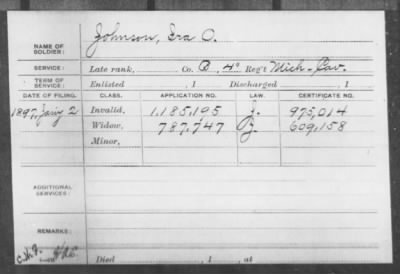 Johnson, Ira O.
NAME OF SOLDIER:
SERVICE: Late rank, Co. B, 4" Reg't Mich. Cav.
TERM OF SERVICE: Enlisted , 1 Discharged , 1
DATE OF FILING. CLASS. APPLICATION NO. LAW. CERTIFICATE NO.
1897, Jany 2 Invalid, 1,185,105 J. 975,014
Widow, 787,747 J. 609,158
Minor,
ADDITIONAL SERVICES:
REMARKS:
Died , 1 , at